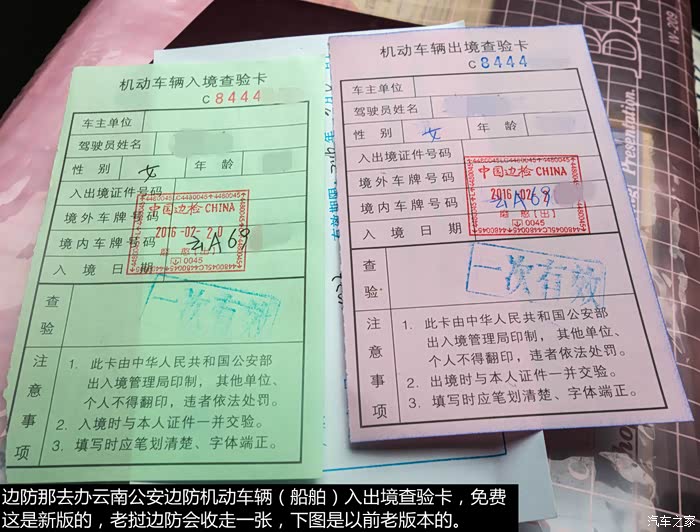 机动车辆入境查验卡
C 8444
车主单位
驾驶员姓名
性别 女 年龄
入出境证件号码
境外车牌号码
境内车牌号码 云A68
入境日期
中国边检 CHINA
2016-02-20
0045
查验
一次有效
注意事项
1. 此卡由中华人民共和国公安部
出入境管理局印制,其他单位、
个人不得翻印,违者依法处罚。
2. 入境时与本人证件一并交验。
3. 填写时应笔划清楚、字体端正。
机动车辆出境查验卡
C 8444
车主单位
驾驶员姓名
性别 女 年龄
入出境证件号码
境外车牌号码
境内车牌号码 云A68
入境日期
中国边检 CHINA
2016-02
磨憨[出]
0045
查验
一次有效
注意事项
1. 此卡由中华人民共和国公安部
出入境管理局印制,其他单位、
个人不得翻印,违者依法处罚。
2. 出境时与本人证件一并交验。
3. 填写时应笔划清楚、字体端正。
W-209
Presentation.
边防那去办云南公安边防机动车辆(船舶)入出境查验卡,免费
这是新版的,老挝边防会收走一张,下图是以前老版本的。
汽车之家